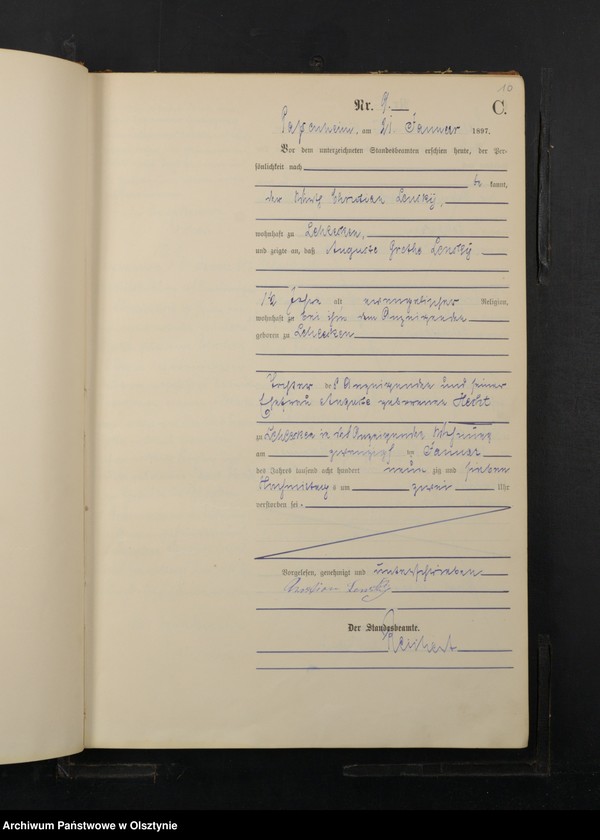 10
Nr. 9.
C.
am 21. Januar 1897.
Vor dem unterzeichneten Standesbeamten erschien heute, der Per-
sönlichkeit nach
be kannt,
der Wirth Christian Lensky,
wohnhaft zu
und zeigte an, daß Auguste Grethe Lensky
1½ Jahre alt evangelischer Religion,
wohnhaft zu bei ihm dem Anzeigende
geboren zu
Tochter des Anzeigenden und seiner
Ehefrau Auguste geborene Hecht
zu in des Anzeigende Wohnung
am zwanzigsten Januar
des Jahres tausend acht hundert neun zig und sieben
Nachmittag s um zwei Uhr
verstorben sei.
Vorgelesen, genehmigt und unterschrieben
Christian Lensky
Der Standesbeamte.
Reichert
Archiwum Państwowe w Olsztynie